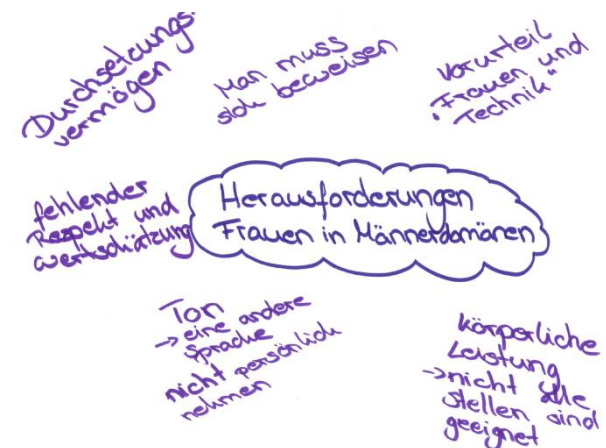 Durchsetzungs-
vermögen
Man muss
sich beweisen
Vorurteil
"Frauen und
Technik"
fehlender
Respekt und
Wertschätzung
Herausforderungen
Frauen in Männerdomänen
Ton
-> eine andere
Sprache
nicht persönlich
nehmen
körperliche
Leistung
-> nicht alle
Stellen sind
geeignet